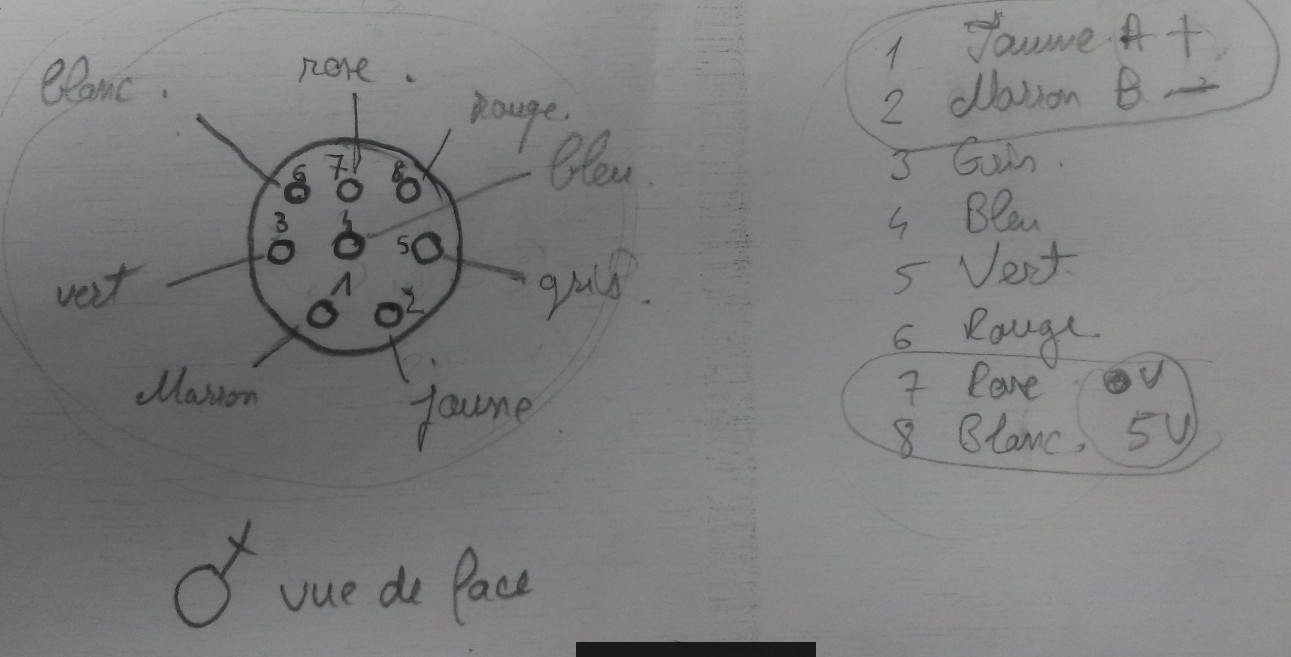 blanc.
rose.
Rouge.
bleu.
6 7 8
3 4 5
1 2
vert
gris.
Marron
jaune
vue de face
1 Jaune A +
2 Marron B -
3 Gris.
4 Bleu
5 Vert
6 Rouge
7 Rose 0V
8 Blanc. 5V